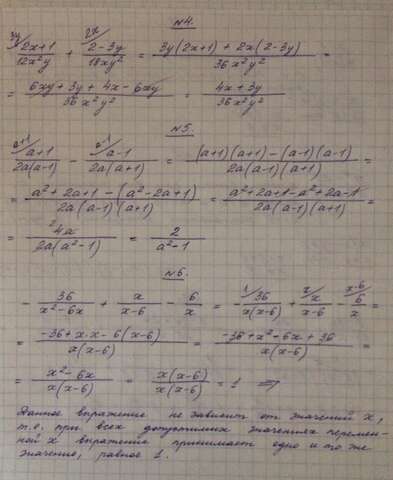 №4.
3y/ (2x+1)/(12x²y) + 2x/ (2-3y)/(18xy²) = (3y(2x+1) + 2x(2-3y))/(36x²y²) =
= (6xy + 3y + 4x - 6xy)/(36x²y²) = (4x + 3y)/(36x²y²)
№5.
a+1/ (a+1)/(2a(a-1)) - a-1/ (a-1)/(2a(a+1)) = ((a+1)(a+1) - (a-1)(a-1))/(2a(a-1)(a+1)) =
= (a² + 2a + 1 - (a² - 2a + 1))/(2a(a-1)(a+1)) = (a² + 2a + 1 - a² + 2a - 1)/(2a(a-1)(a+1)) =
= 4a/(2a(a²-1)) = 2/(a²-1)
№6.
- 36/(x²-6x) + x/(x-6) - 6/x = - 1/ 36/(x(x-6)) + x/ x/(x-6) - x-6/ 6/x =
= (-36 + x·x - 6(x-6))/(x(x-6)) = (-36 + x² - 6x + 36)/(x(x-6)) =
= (x² - 6x)/(x(x-6)) = (x(x-6))/(x(x-6)) = 1 ⇒
Данное выражение не зависит от значений x,
т.е. при всех допустимых значениях перемен-
ной x выражение принимает одно и то же
значение, равное 1.